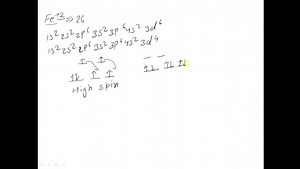 Fe+2 ⇒ 26
1s² 2s² 2p⁶ 3s² 3p⁶ 4s² 3d⁶
1s² 2s² 2p⁶ 3s² 3p⁶ 4s² 3d⁴
High spin